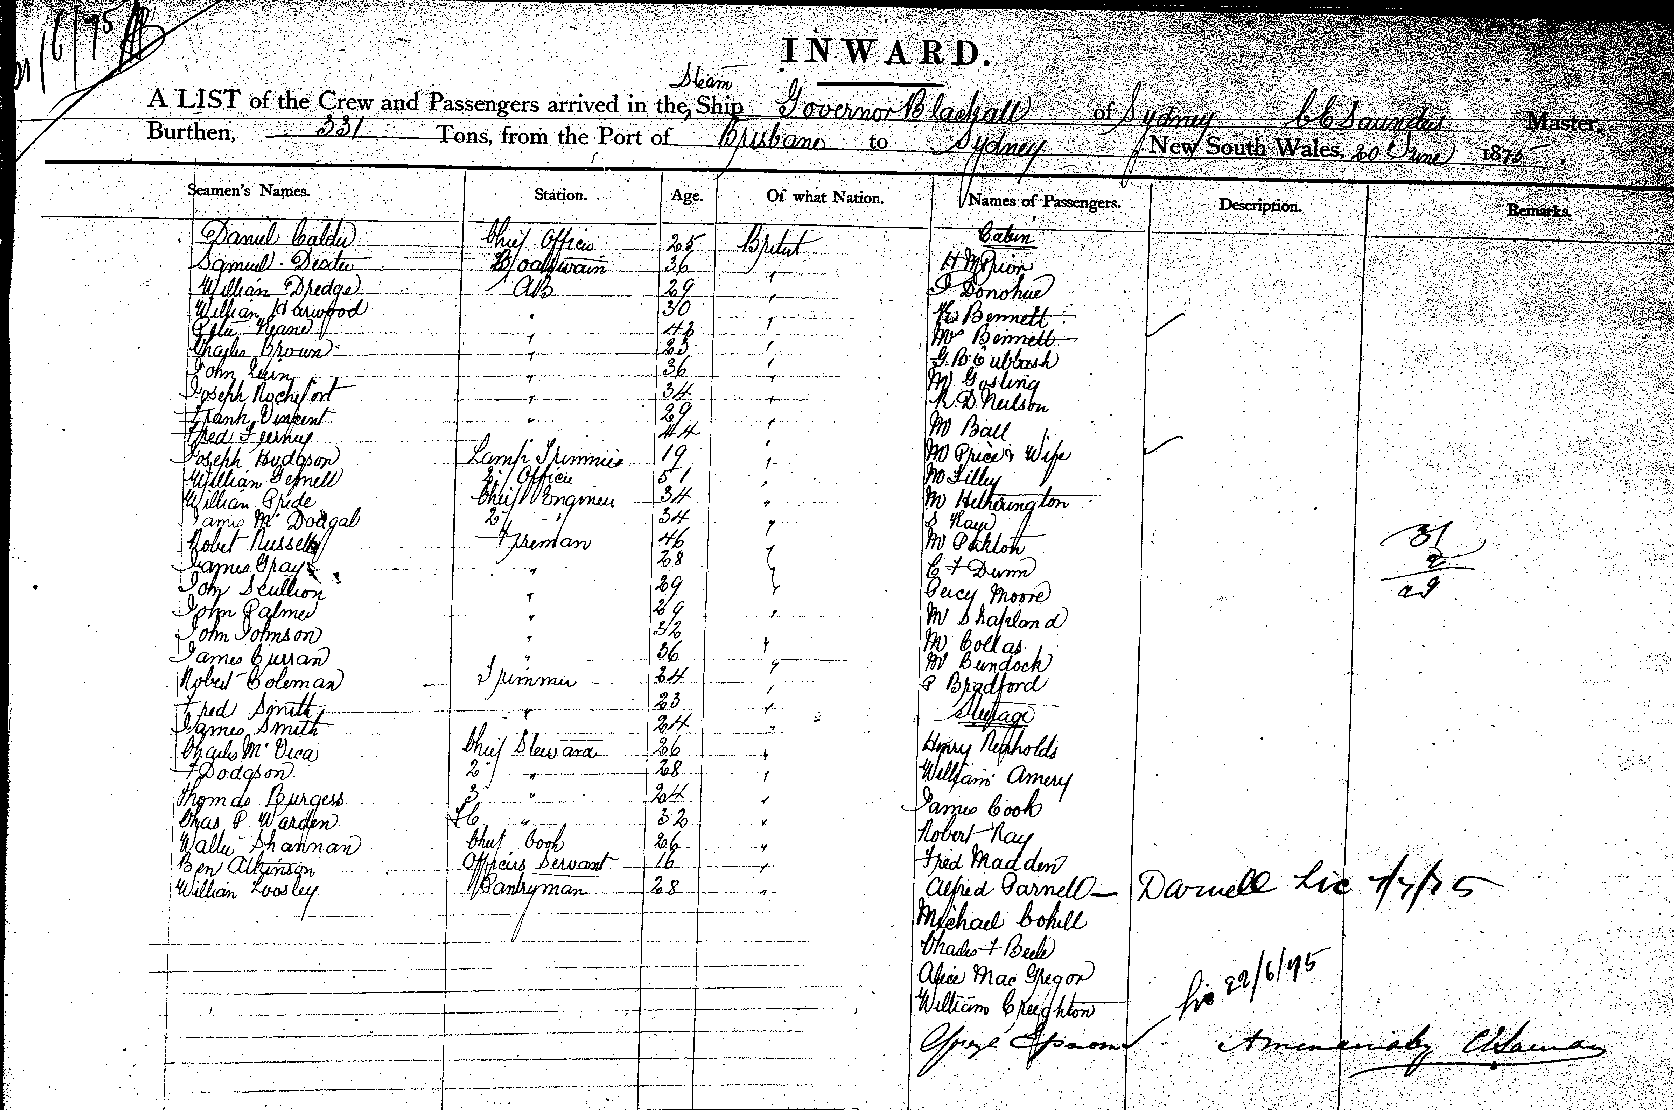 21/6/75
INWARD.
Steam
A LIST of the Crew and Passengers arrived in the Ship Governor Blackall of Sydney C C Saunders Master,
Burthen, 331 Tons, from the Port of Brisbane to Sydney New South Wales, 20 June 1875
Seamen's Names. Station. Age. Of what Nation. Names of Passengers. Description. Remarks.
Daniel Calder Chief Officer 25 British
Samuel Dexter Boatswain 36 "
William Dredge AB 29 "
William Harwood " 30
Peter Keane " 43 "
Charles Brown " 23 "
John " 36 "
Joseph Rochfort " 34 "
Frank Vincent " 29 "
Fred 44 "
Joseph Hudgson Lamp Trimmer 19 "
William 2 Officer 51 "
William Pride Chief Engineer 34 "
James McDougal 2 " 34 "
Robert Russell Fireman 46 "
James Gray " 28 "
John Scullion " 29 "
John Palmer " 29 "
John Johnson " 32
James Curran " 36 "
Robert Coleman Trimmer 24 "
Fred Smith " 23 "
James Smith 24 "
Charles McVica Chief Steward 26 "
F Dodgson 2 " 28 "
Thomas Burgess 3 " 24 "
Chas P Warden " 32 "
Walter Shannan Chief Cook 26 "
Ben Atkinson Officers Servant 16 "
William Loosley Pantryman 28 "
Cabin
H M Prior
Donohue
Bennett
Mrs Bennett
G. B. Cubbash
Mr Gosling
R. D. Neilson
Mr Ball
Mr Price & Wife
Mr Lilley
Mr Hetherington
S Kaye
Mr
C F Dunn
Percy Moore
Mr Shapland
Mr Collas
Mr Bundock
P Bradford
Steerage
Henry Reynolds
William Amery
James Cook
Robert Ray
Fred Madden
Alfred Parnell — Darnell Lic 7/7/75
Michael Cohill
Charles F Beele
Alice Mac Gregor
William Creighton
George
31
2
29
Lic 22/6/75